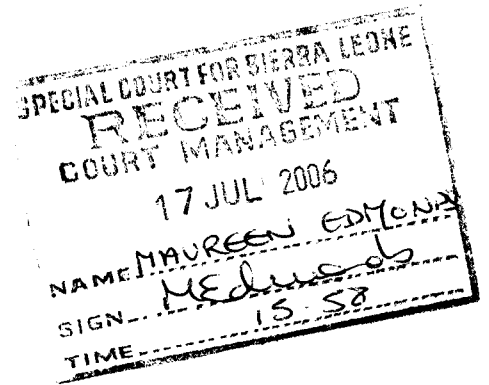 SPECIAL COURT FOR SIERRA LEONE
RECEIVED
COURT MANAGEMENT
17 JUL 2006
NAME MAUREEN EDMONDS
SIGN MEdmonds
TIME 15.58